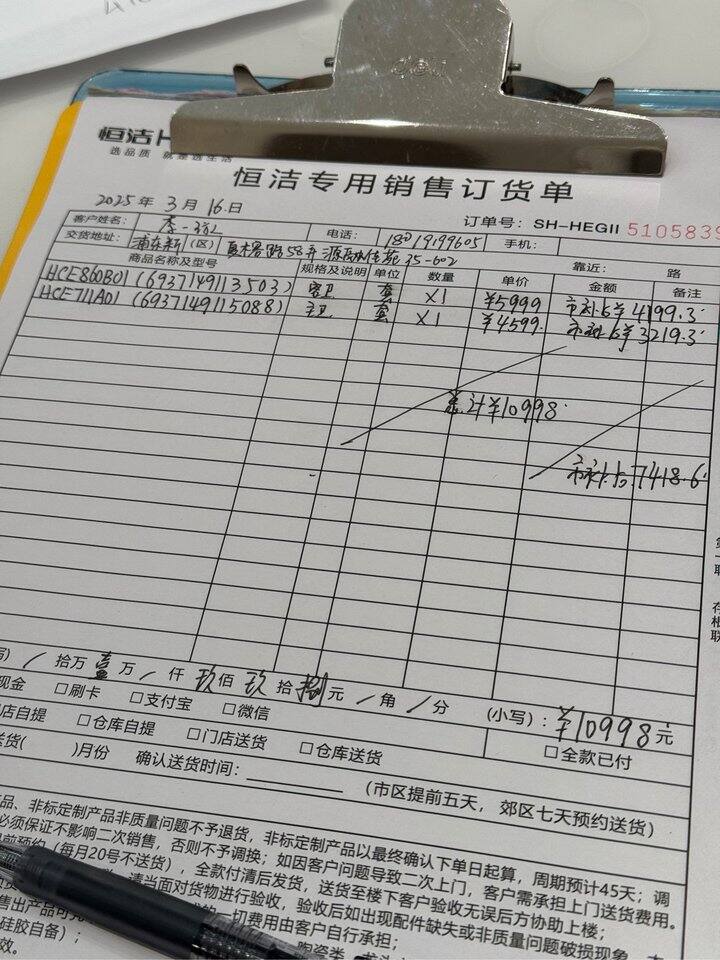 恒洁
选品质 就是选生活
恒洁专用销售订货单
2025年 3月 16日
订单号: SH-HEGII 5105839
客户姓名: 李 电话: 18019199605 手机:
交货地址: 浦东新(区) 58弄 35-602 靠近: 路
商品名称及型号 规格及说明 单位 数量 单价 金额 备注
HCE860B01 (6937149113503) 客卫 套 X1 ¥5999 ¥4199.3
HCE711A01 (6937149115088) 主卫 套 X1 ¥4599. ¥3219.3
¥10998.
7418.6
写) / 拾万 壹万 / 仟 玖佰 玖拾 捌元 / 角 / 分 (小写): ¥10998元
现金 □刷卡 □支付宝 □微信 □全款已付
店自提 □仓库自提 □门店送货 □仓库送货
送货( )月份 确认送货时间: (市区提前五天, 郊区七天预约送货)
品、非标定制产品非质量问题不予退货, 非标定制产品以最终确认下单日起算, 周期预计45天; 调
必须保证不影响二次销售, 否则不予调换; 如因客户问题导致二次上门, 客户需承担上门送货费用。
前预约 (每月20号不送货), 全款付清后发货, 送货至楼下客户验收无误后方协助上楼;
请当面对货物进行验收, 验收后如出现配件缺失或非质量问题破损现象, 本
售出产品 的一切费用由客户自行承担;
硅胶自备);
效。